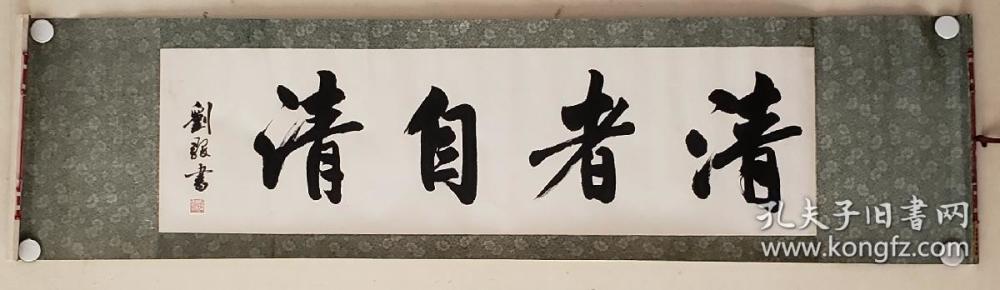 清者自清
劉駿書
孔夫子旧書网
www.kongfz.com